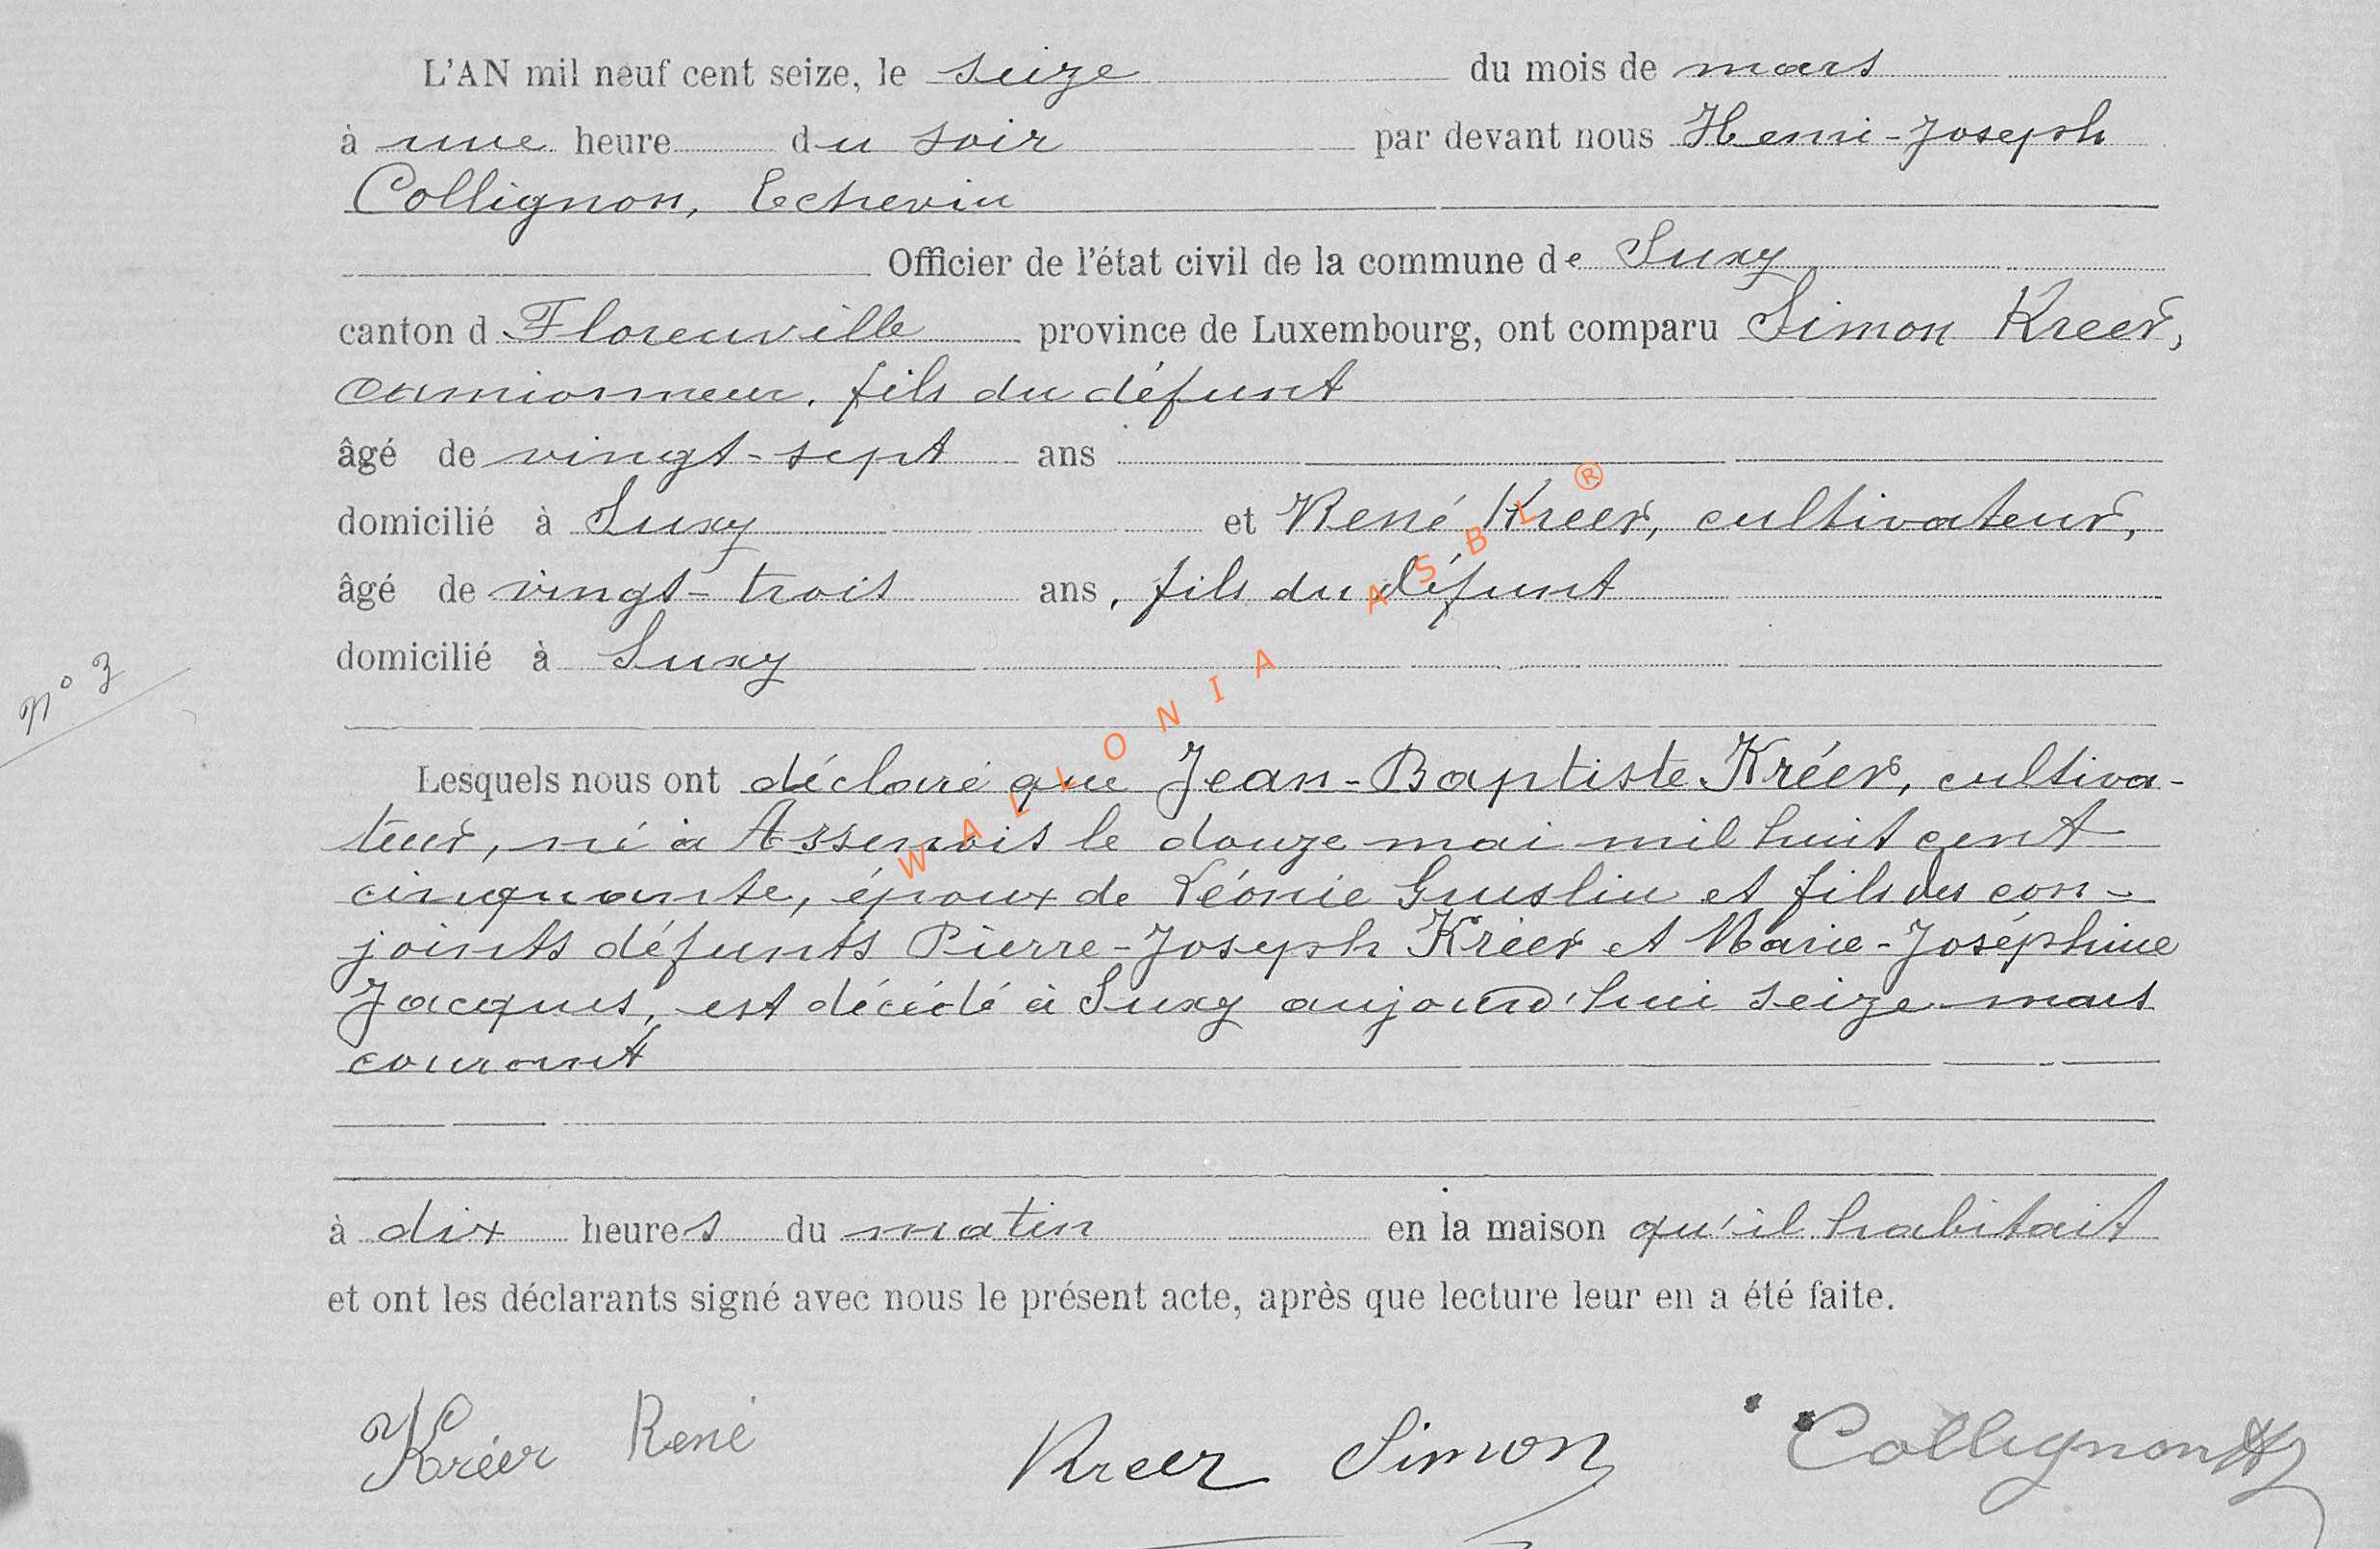 L'AN mil neuf cent seize, le seize du mois de mars
à une heure du soir par devant nous Henri-Joseph
Collignon, Echevin
Officier de l'état civil de la commune de Suxy
canton d Florenville province de Luxembourg, ont comparu Simon Kreer,
camionneur, fils du défunt
âgé de vingt-sept ans
domicilié à Suxy et René Kreer, cultivateur,
âgé de vingt-trois ans, fils du défunt
domicilié à Suxy
N° 3
Lesquels nous ont déclaré que Jean-Baptiste Kréer, cultiva-
teur, né à Assenois le douze mai mil huit cent
cinquante, époux de Léonie Guislin et fils des con-
joints défunts Pierre-Joseph Kréer et Marie-Joséphine
Jacques, est décédé à Suxy aujourd'hui seize mars
courant
à dix heures du matin en la maison qu'il habitait
et ont les déclarants signé avec nous le présent acte, après que lecture leur en a été faite.
Kréer René Kreer Simon Collignon HJ
WALLONIA ASBL ®